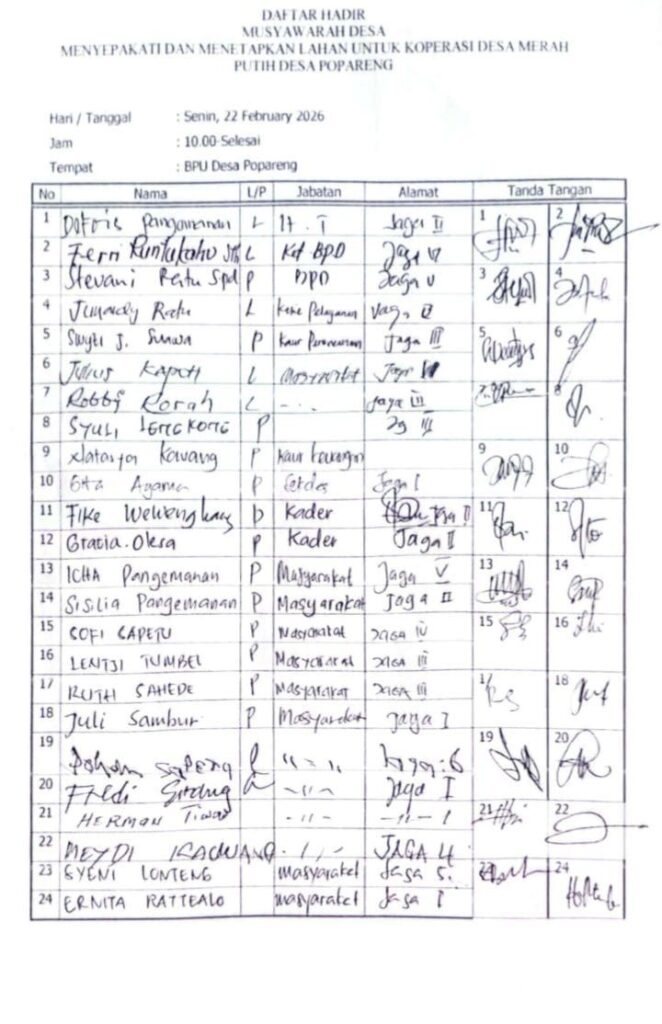 DAFTAR HADIR
MUSYAWARAH DESA
MENYEPAKATI DAN MENETAPKAN LAHAN UNTUK KOPERASI DESA MERAH
PUTIH DESA POPARENG
Hari / Tanggal : Senin, 22 February 2026
Jam : 10.00-Selesai
Tempat : BPU Desa Popareng
No Nama L/P Jabatan Alamat Tanda Tangan
1 Pangemanan L Jaga II 1 2
2 Ferri Runtukahu L Ket BPD Jaga VI
3 Stevani Ratu Spd P BPD Jaga V 3 4
4 Ratu L Jaga II
5 J. P Kaur Perencanaan Jaga III 5 6
6 Julius L Masyarakat Jaga
7 Robby Korah L - . . Jaga III 7 8
8 SYULI LENGKONG P Jg III
9 Kawang P Kaur keuangan 9 10
10 Gita Agama P Sekdes Jaga I
11 Fike P Kader Jaga II 11 12
12 Gratia. P Kader Jaga II
13 ICHA Pangemanan P Masyarakat Jaga V 13 14
14 Sisilia Pangemanan P Masyarakat Jaga II
15 SOFI P Masyarakat JAGA IV 15 16
16 LENTJI TUMBEL P Masyarakat JAGA III
17 RUTH SAHEDE P Masyarakat JAGA III 17 18
18 Juli Sambur P Masyarakat Jaga I
19 L " - " 19 20
20 Fredi L - " - Jaga I
21 HERMAN - " - - " - I 21 22
22 MEYDI JAGA 4
23 SYENI LONTENG masyarakat Jaga 5. 23 24
24 ERNITA RATTEALO masyarakat Jaga I